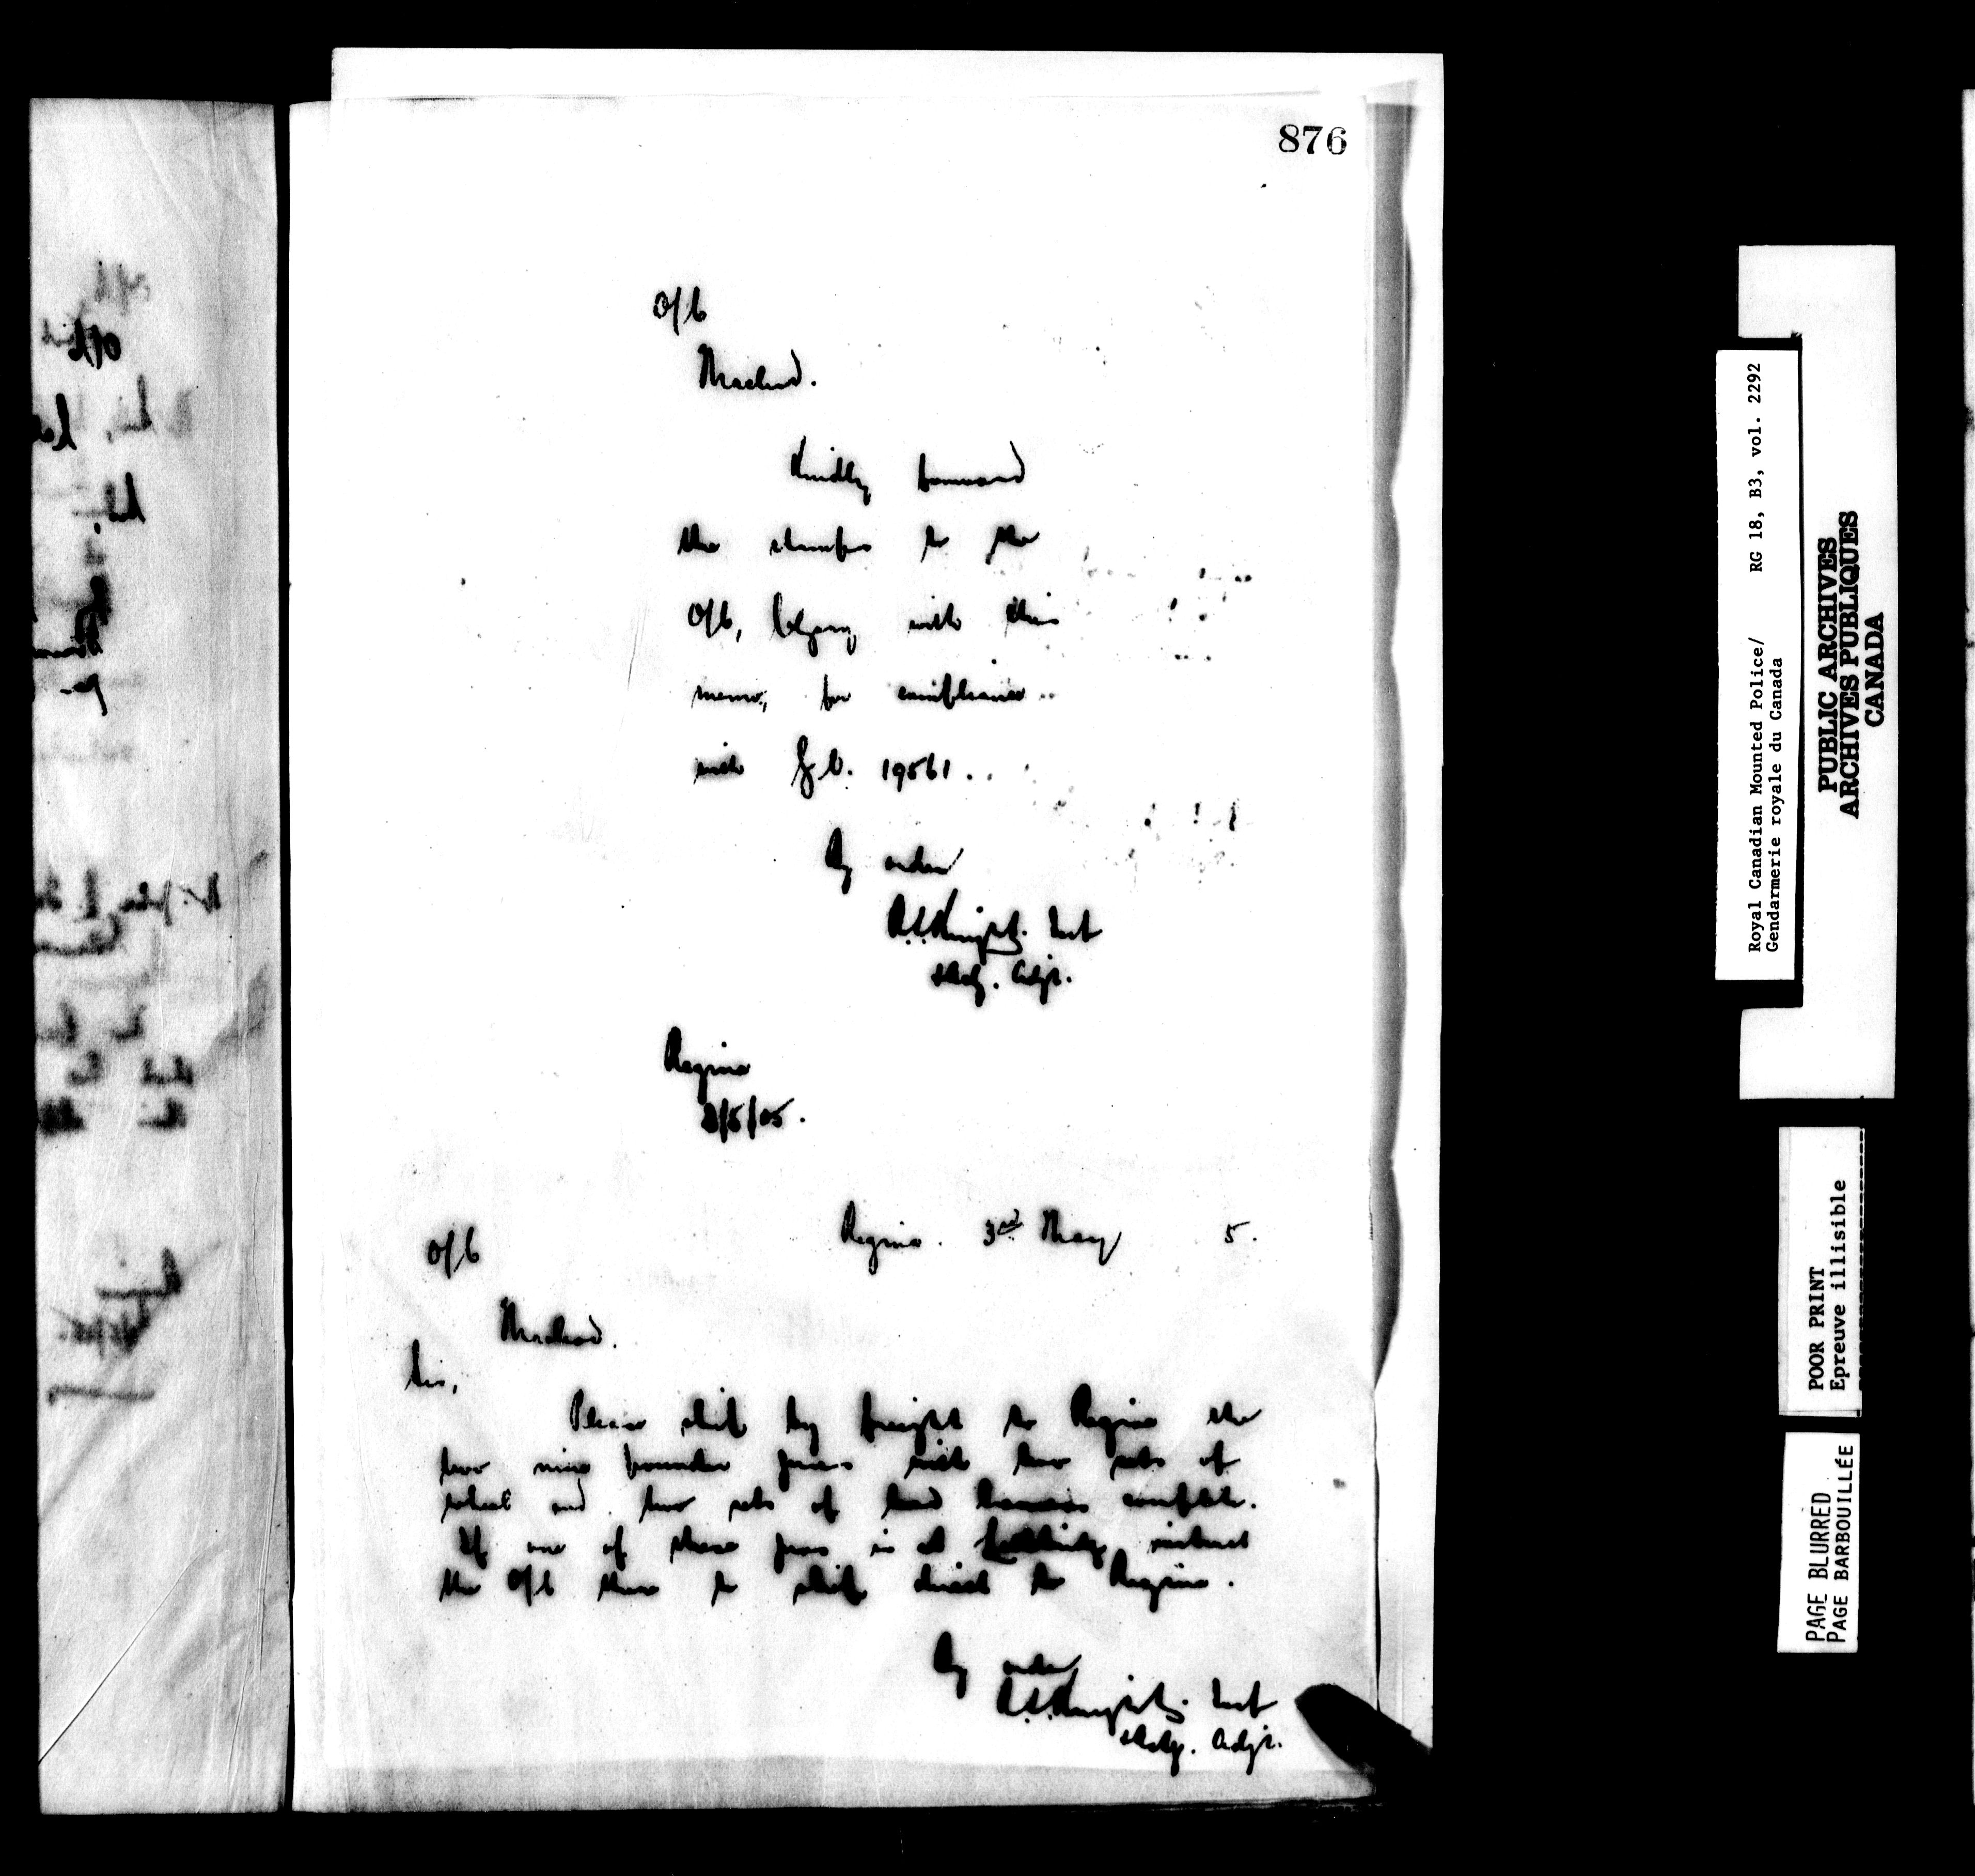 876
O/C
Macleod.
Kindly forward
the stamps to the
O/C, Calgary with this
memo, for compliance
with G.O. 19561.
By order
R.S.Knight. Insp
Actg. Adjt.
Regina
3/5/05.
Regina. 3rd May 5.
O/C
Macleod.
Sir,
Please ship by freight to Regina the
two nine pounder guns with two sets of
wheel and two sets of lead harness complete.
If one of these guns is at Lethbridge instruct
the O/C there to ship direct to Regina.
By order
R.S.Knight. Insp
Actg. Adjt.
Royal Canadian Mounted Police/ RG 18, B3, vol. 2292
Gendarmerie royale du Canada
PUBLIC ARCHIVES
ARCHIVES PUBLIQUES
CANADA
POOR PRINT
Epreuve illisible
PAGE BLURRED
PAGE BARBOUILLÉE